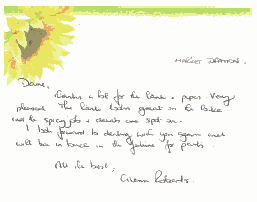 MARKET DRAYTON.
Dave,
Thanks a lot for the tank + paper. Very
pleased. The tank looks great on the bike
and the spray job + decals are spot on.
I look forward to dealing with you again and
will be in touch in the future for parts.
All the best,
Glenn